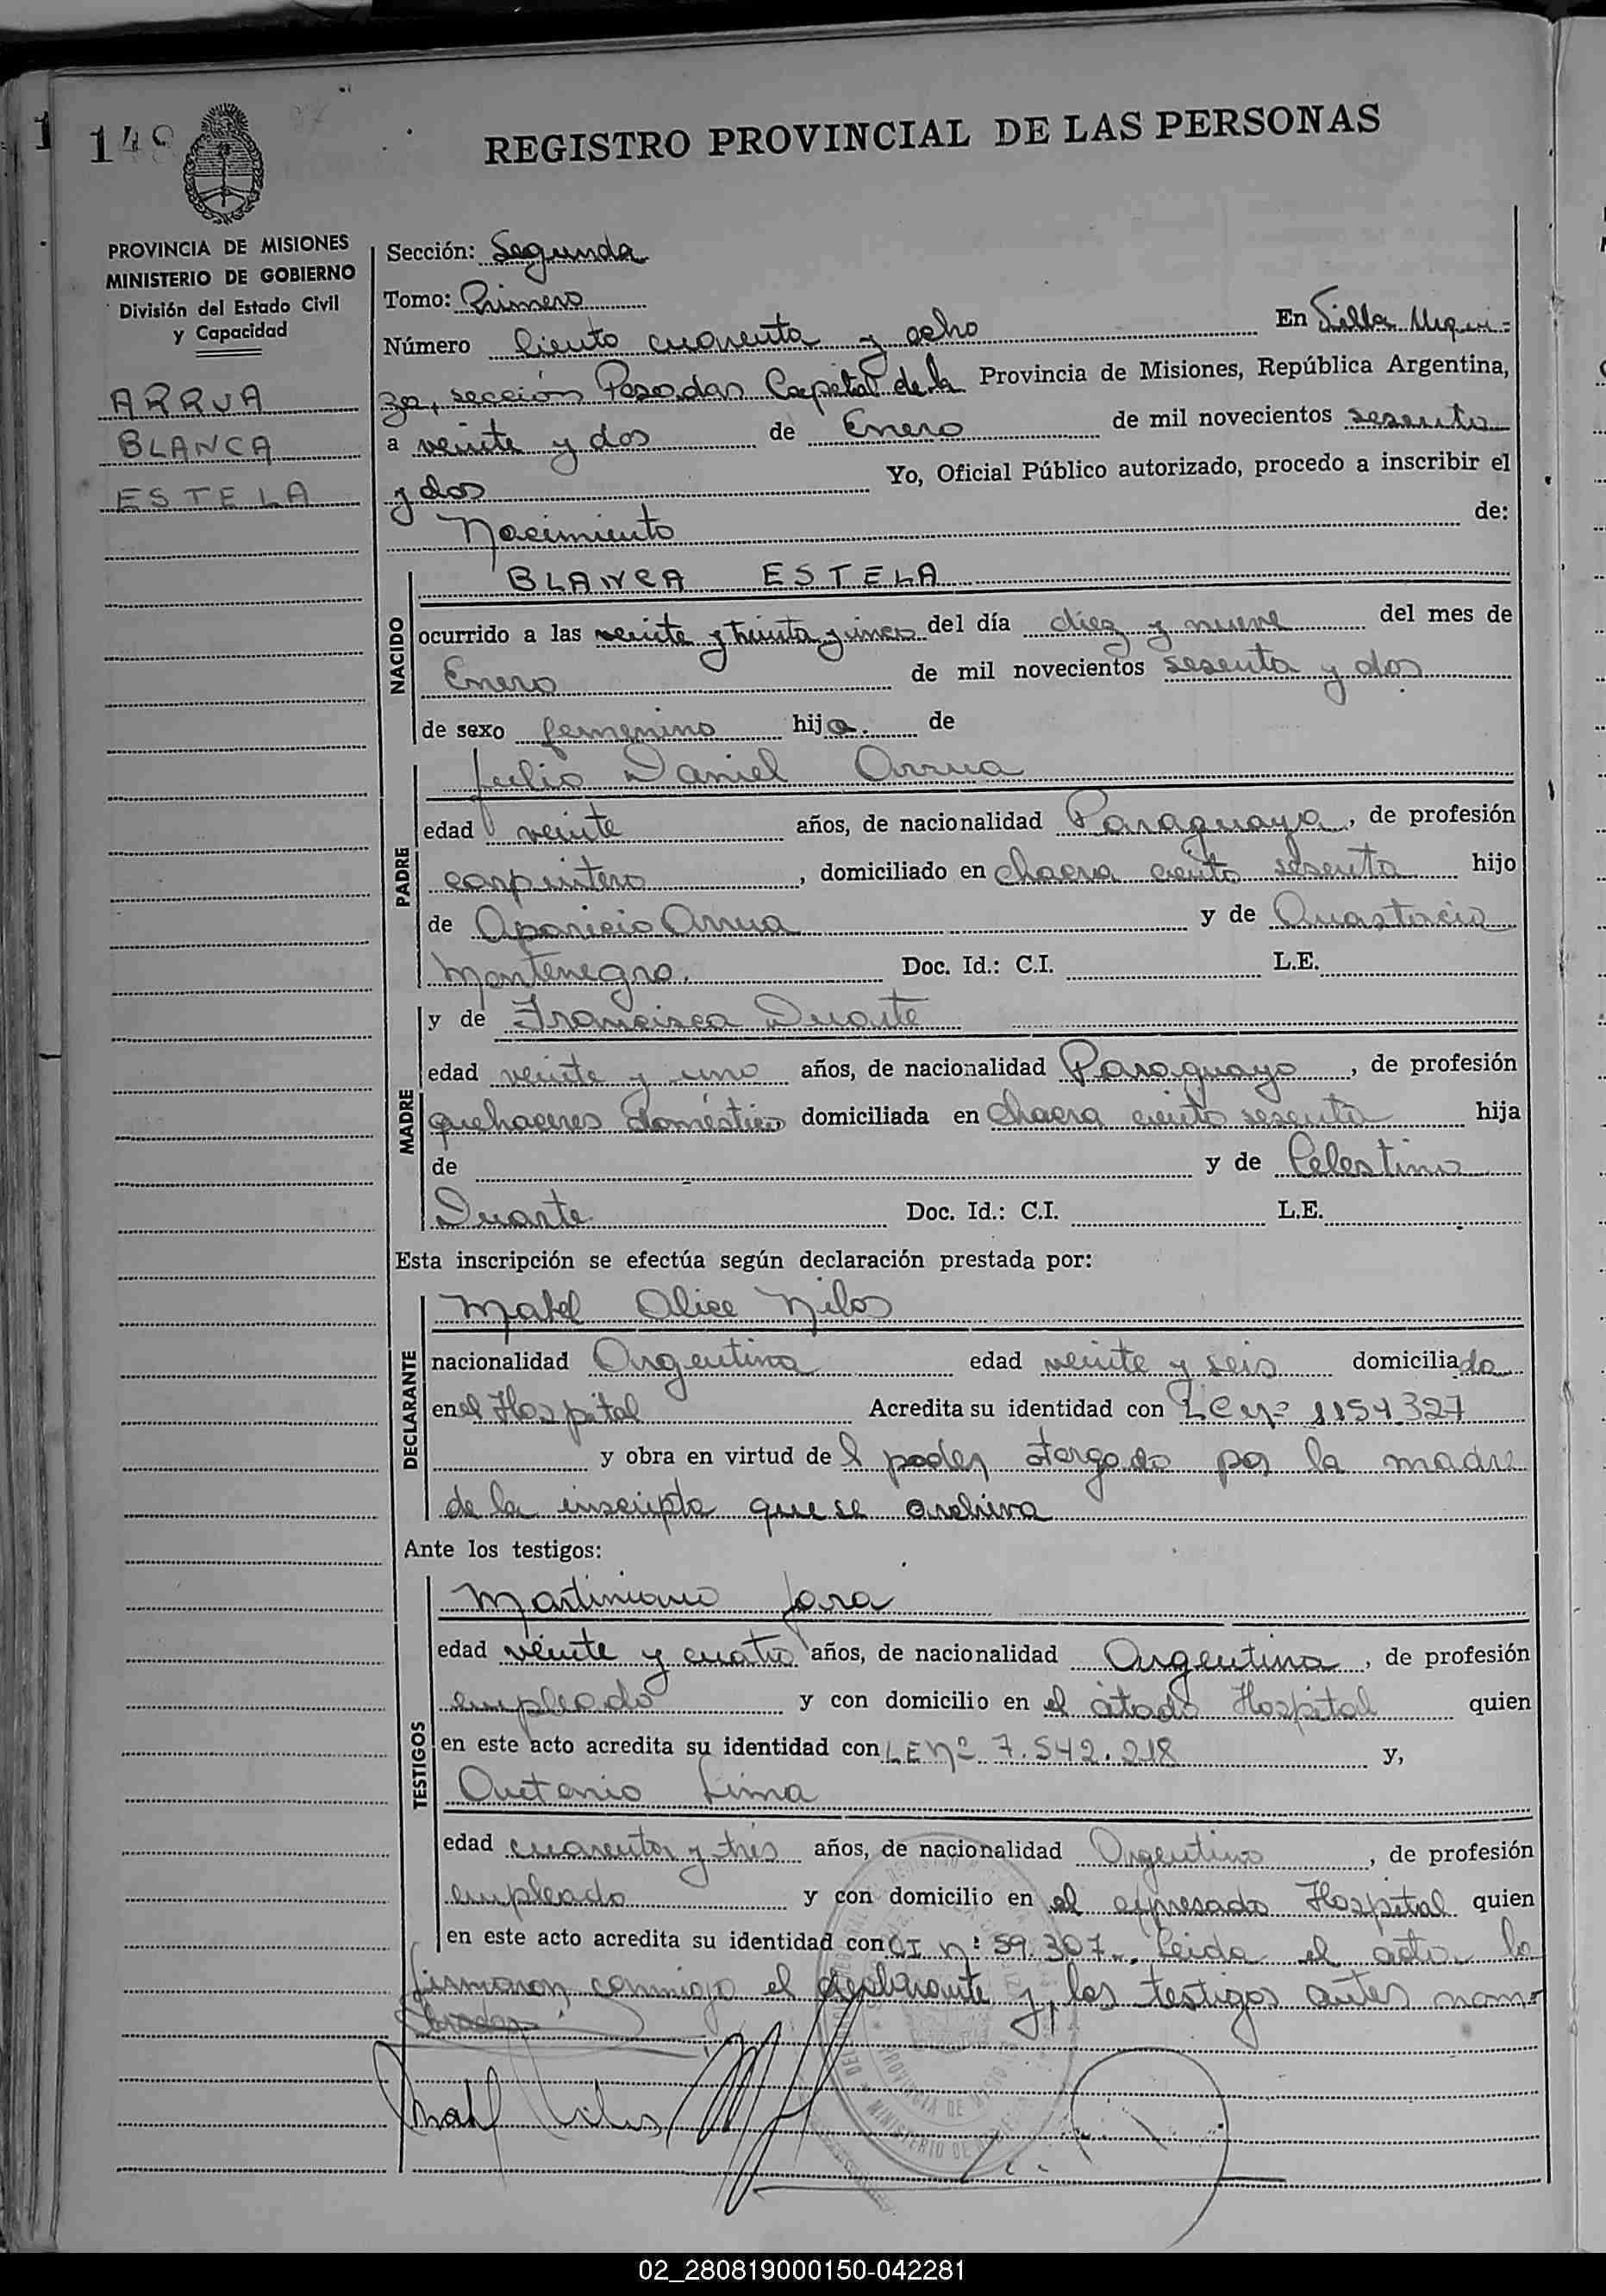 148
REGISTRO PROVINCIAL DE LAS PERSONAS
PROVINCIA DE MISIONES
MINISTERIO DE GOBIERNO
División del Estado Civil
y Capacidad
ARRUA
BLANCA
ESTELA
Sección: Segunda
Tomo: Primero
Número Ciento cuarenta y ocho En Villa Urqui-
za, sección Posadas Capital de la Provincia de Misiones, República Argentina,
a veinte y dos de Enero de mil novecientos sesenta
y dos Yo, Oficial Público autorizado, procedo a inscribir el
Nacimiento de:
NACIDO
BLANCA ESTELA
ocurrido a las veinte y treinta y cinco del día diez y nueve del mes de
Enero de mil novecientos sesenta y dos
de sexo femenino hija. de
PADRE
Julio Daniel Arrua
edad veinte años, de nacionalidad Paraguaya, de profesión
carpintero, domiciliado en chacra ciento sesenta hijo
de Aparicio Arrua y de Anastacia
Montenegro. Doc. Id.: C.I. L.E.
MADRE
y de Francisca Duarte
edad veinte y uno años, de nacionalidad Paraguaya, de profesión
quehaceres domésticos domiciliada en chacra ciento sesenta hija
de y de Celestina
Duarte Doc. Id.: C.I. L.E.
Esta inscripción se efectúa según declaración prestada por:
DECLARANTE
Mabel Alice Nilos
nacionalidad Argentina edad veinte y seis domiciliada
en el Hospital Acredita su identidad con LC nº 1154.327
y obra en virtud del poder otorgado por la madre
de la inscripta que se archiva
Ante los testigos:
TESTIGOS
Martiniano Jara
edad veinte y cuatro años, de nacionalidad Argentina, de profesión
empleado y con domicilio en el citado Hospital quien
en este acto acredita su identidad con LE Nº 7.542.218 y,
Antonio Lima
edad cuarenta y tres años, de nacionalidad Argentino, de profesión
empleado y con domicilio en el expresado Hospital quien
en este acto acredita su identidad con CI nº 59.307. Leida el acta la
firmaron conmigo el declarante y los testigos antes nom-
brados
02_280819000150-042281